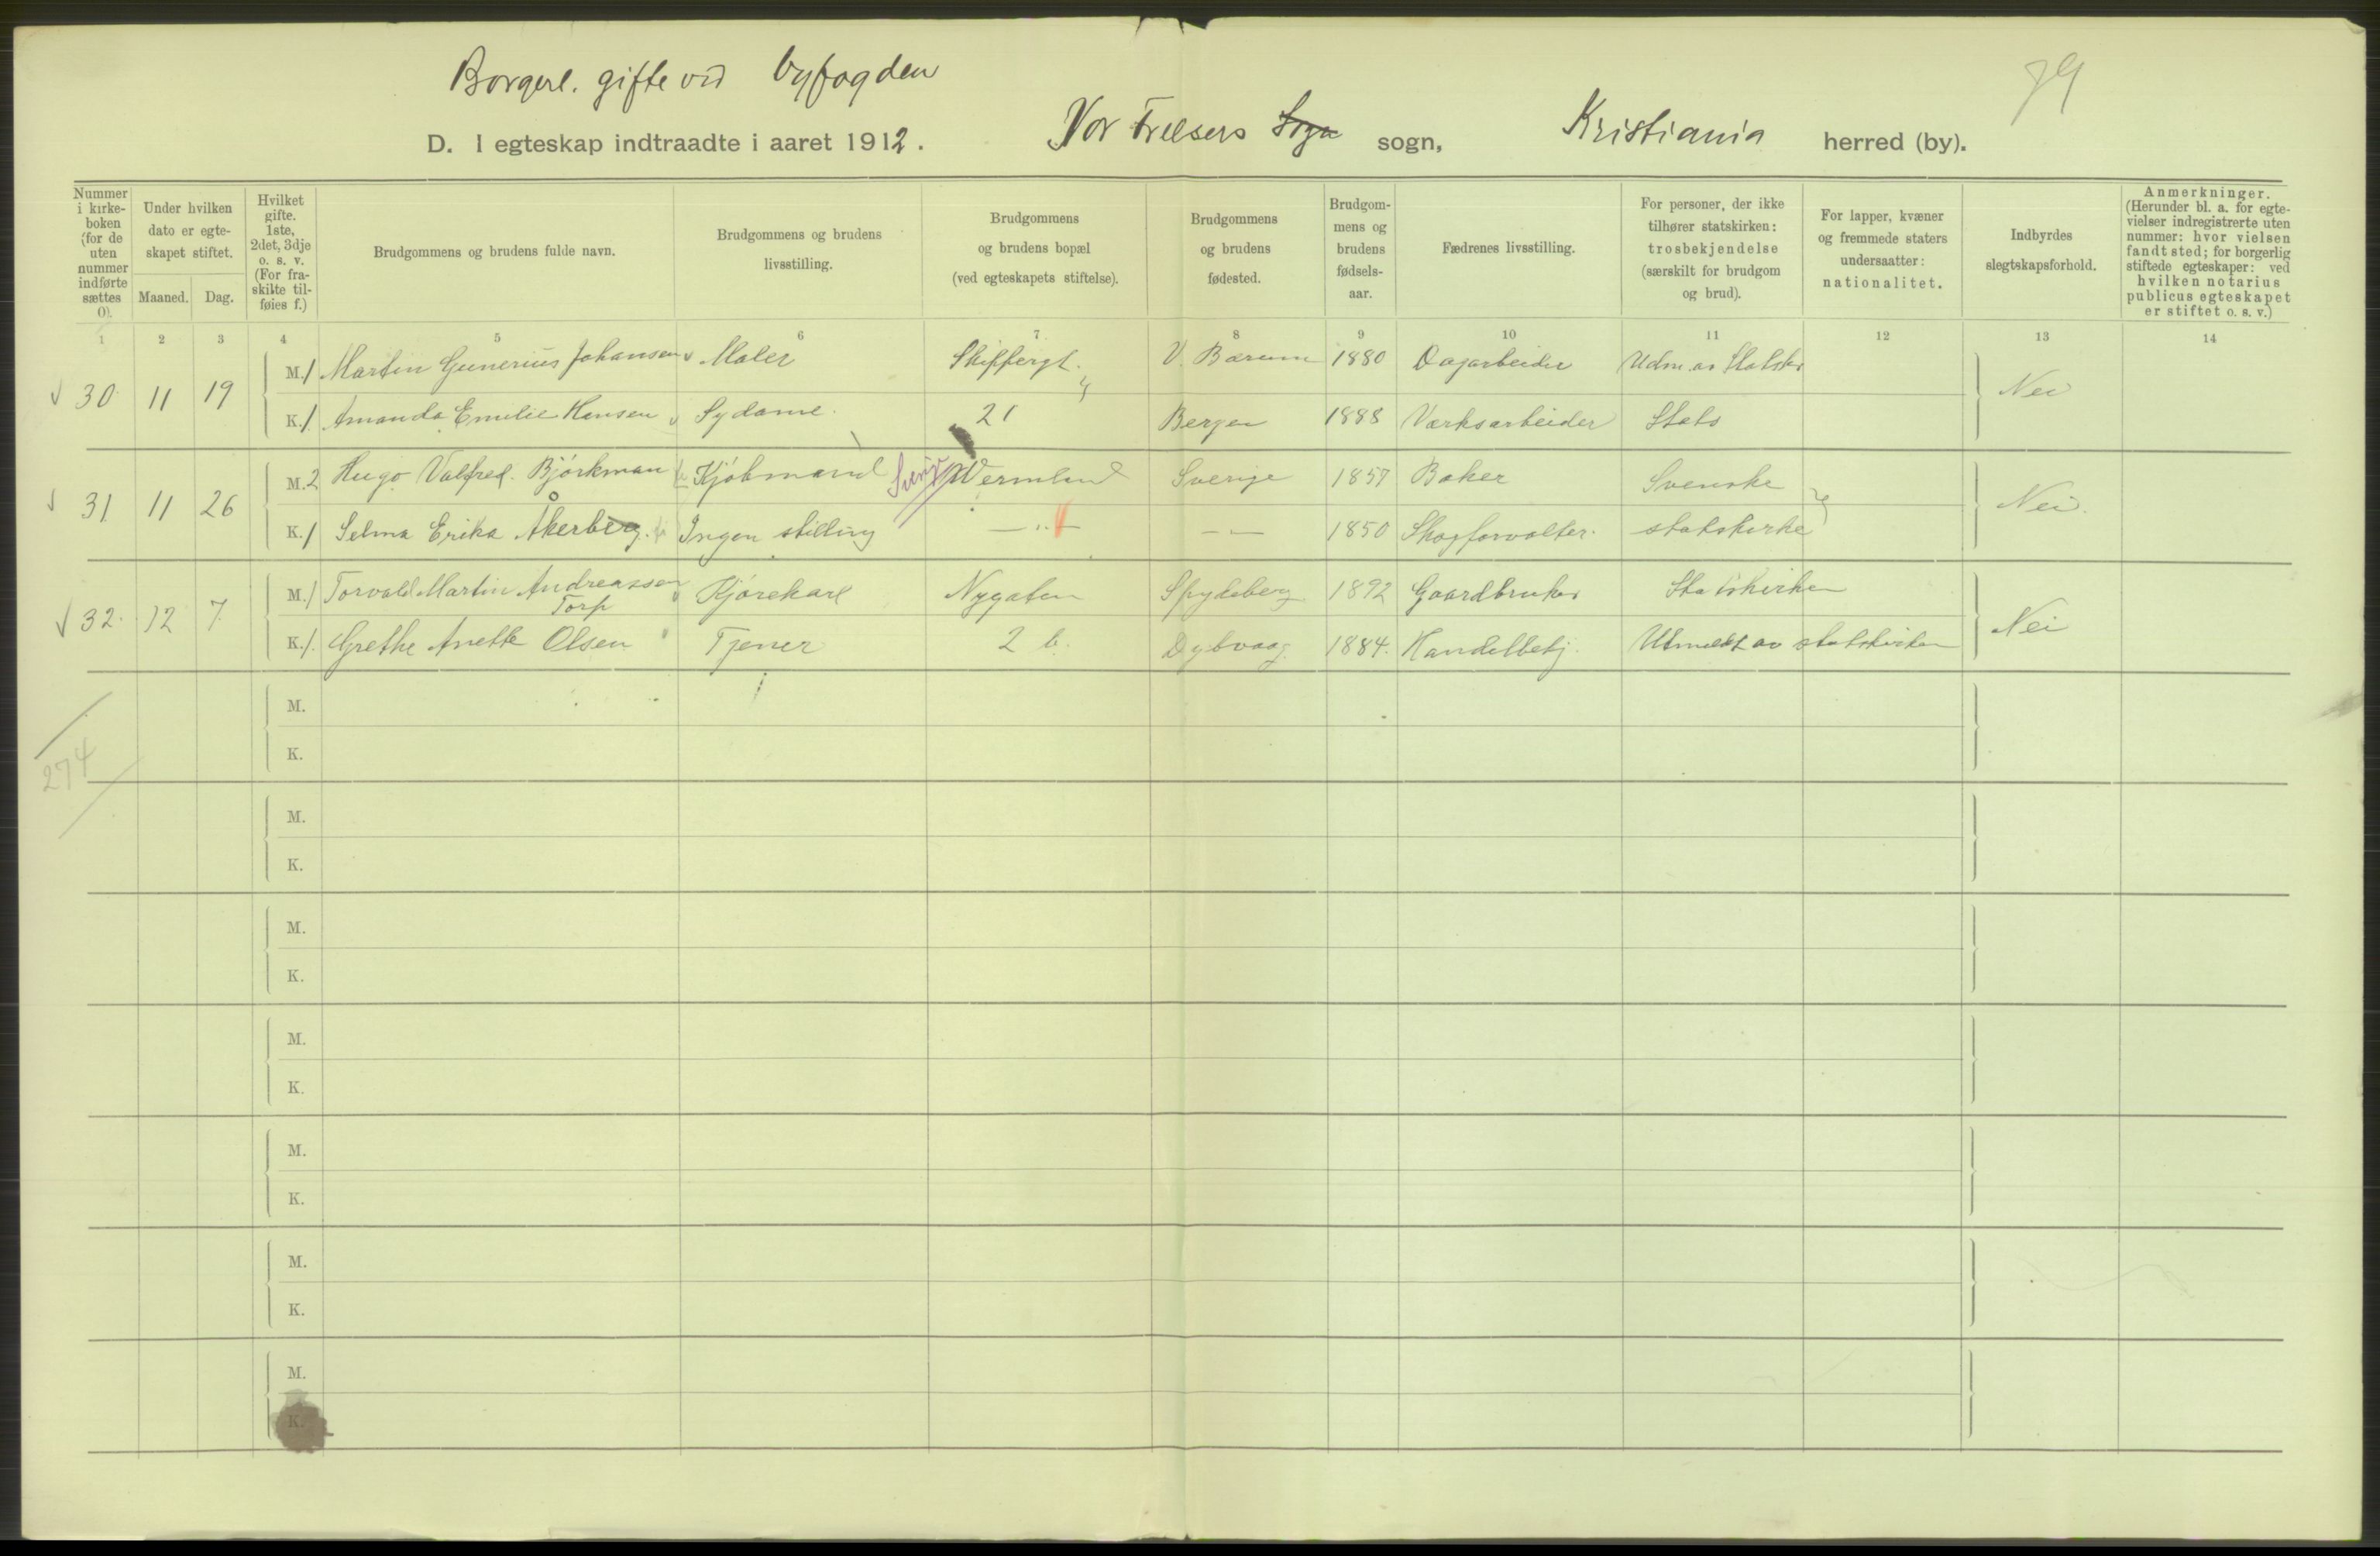 Borgerl. gifte ved byfogden
79
D. I egteskap indtraadte i aaret 1912. Vor Frelsers Sogn sogn, Kristiania herred (by).
Nummer i kirke-boken (for de uten nummer indførte sættes 0).
Under hvilken dato er egte-skapet stiftet.
Maaned. Dag.
Hvilket gifte. 1ste, 2det, 3dje o. s. v. (For fra-skilte til-føies f.)
Brudgommens og brudens fulde navn.
Brudgommens og brudens livsstilling.
Brudgommens og brudens bopæl (ved egteskapets stiftelse).
Brudgommens og brudens fødested.
Brudgom-mens og brudens fødsels-aar.
Fædrenes livsstilling.
For personer, der ikke tilhører statskirken: trosbekjendelse (særskilt for brudgom og brud).
For lapper, kvæner og fremmede staters undersaatter: nationalitet.
Indbyrdes slegtskapsforhold.
Anmerkninger. (Herunder bl. a. for egte-vielser indregistrerte uten nummer: hvor vielsen fandt sted; for borgerlig stiftede egteskaper: ved hvilken notarius publicus egteskapet er stiftet o. s. v.)
1 2 3 4 5 6 7 8 9 10 11 12 13 14
30 11 19 M. 1 Martin Gunerius Johansen Maler Skippergt. V. Bærum 1880 Dagarbeider Udm. av Statsk. Nei
K. 1 Amanda Emilie Hansen Sydame. 21 Bergen 1888 Værksarbeider Stats
31 11 26 M. 2 Hugo Valfred Björkman Kjöbmand Sverige Wermland Sverige 1857 Baker Svenske Nei.
K. 1 Selma Erika Åkerberg. Ingen stilling — " — — — 1850 Skogforvalter. statskirke
32. 12 7. M. 1 Torvald Martin Andreassen Torp Kjörekarl Nygaten Spydeberg 1892 Gaardbruker Statskirken Nei
K. 1. Grethe Anette Olsen Tjener 2 b. Dybvaag. 1884. Handelbetj. Utmeldt av statskirken
274
M.
K.
M.
K.
M.
K.
M.
K.
M.
K.
M.
K.
M.
K.